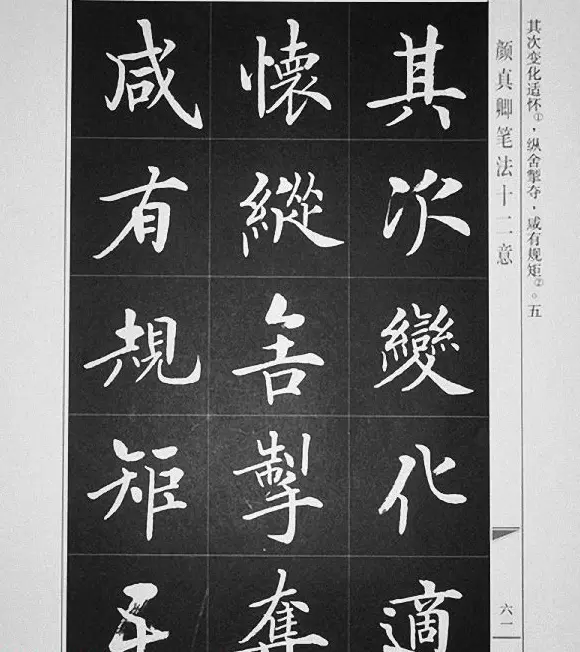 其次变化适怀①，纵舍掣夺，咸有规矩②。五
颜真卿笔法十二意
六一
其次變化適
懷縱舍掣奪
咸有規矩五